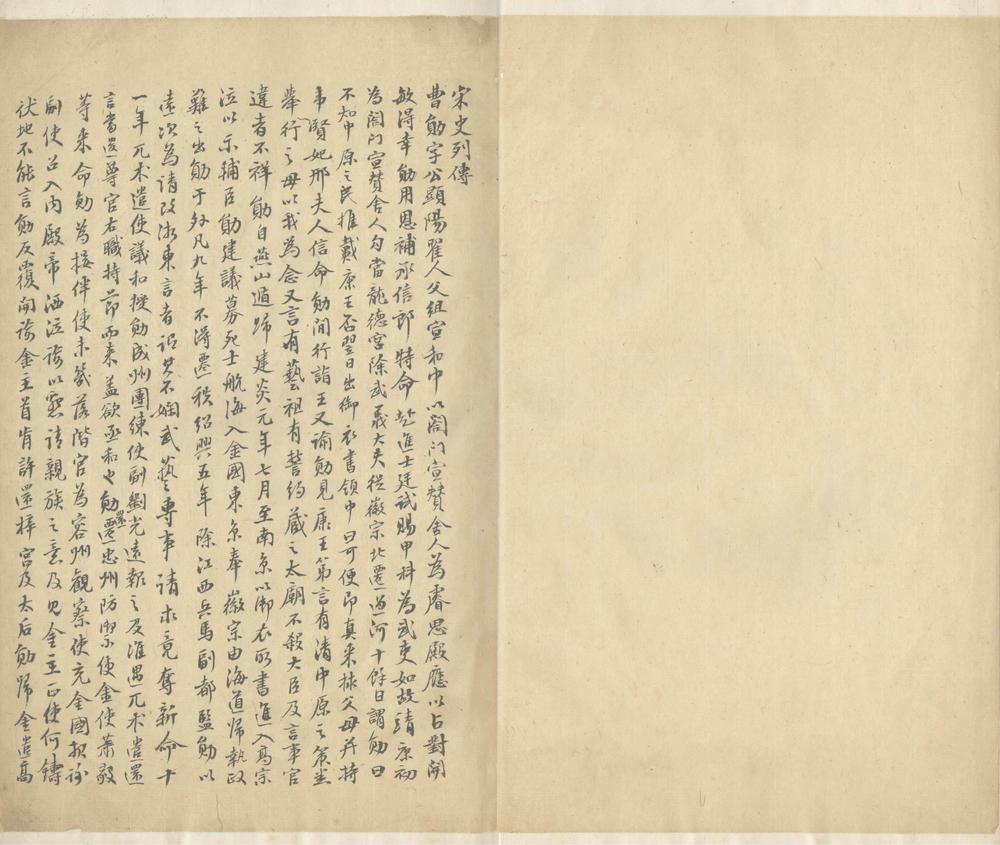 宋史列傳
曹勛字公顯陽翟人父組宣和中以閤門宣贊舍人為睿思殿應以占對開
敏得幸勛用恩補承信郎特命赴進士廷試賜甲科為武吏如故靖康初
為閤門宣贊舍人勾當龍德宮除武義大夫從徽宗北遷過河十餘日謂勛曰
不知中原之民推戴康王否翌日出御衣書領中曰可便即真來援父母并持
韋賢妃邢夫人信命勛間行詣王又諭勛見康王第言有清中原之策悉
舉行之毋以我為念又言有藝祖有誓約藏之太廟不殺大臣及言事官
違者不祥勛自燕山遁歸建炎元年七月至南京以御衣所書進入高宗
泣以示輔臣勛建議募死士航海入金國東京奉徽宗由海道歸執政
難之出勛于外凡九年不得遷秩紹興五年除江西兵馬副都監勛以
遠次為請改浙東言者詆其不嫻武藝專事請求竟奪新命十
一年兀术遣使議和授勛成州團練使副劉光遠報之及淮遇兀术遣還
言當遣尊官右職持節而來蓋欲亟和也勛還遷忠州防禦使金使蕭毅
等來命勛為接伴使未幾落階官為容州觀察使充金國報謝
副使召入內殿帝洒泣諭以懇請親族之意及見金主正使何鑄
伏地不能言勛反覆開諭金主首肯許還梓宮及太后勛歸金遣高